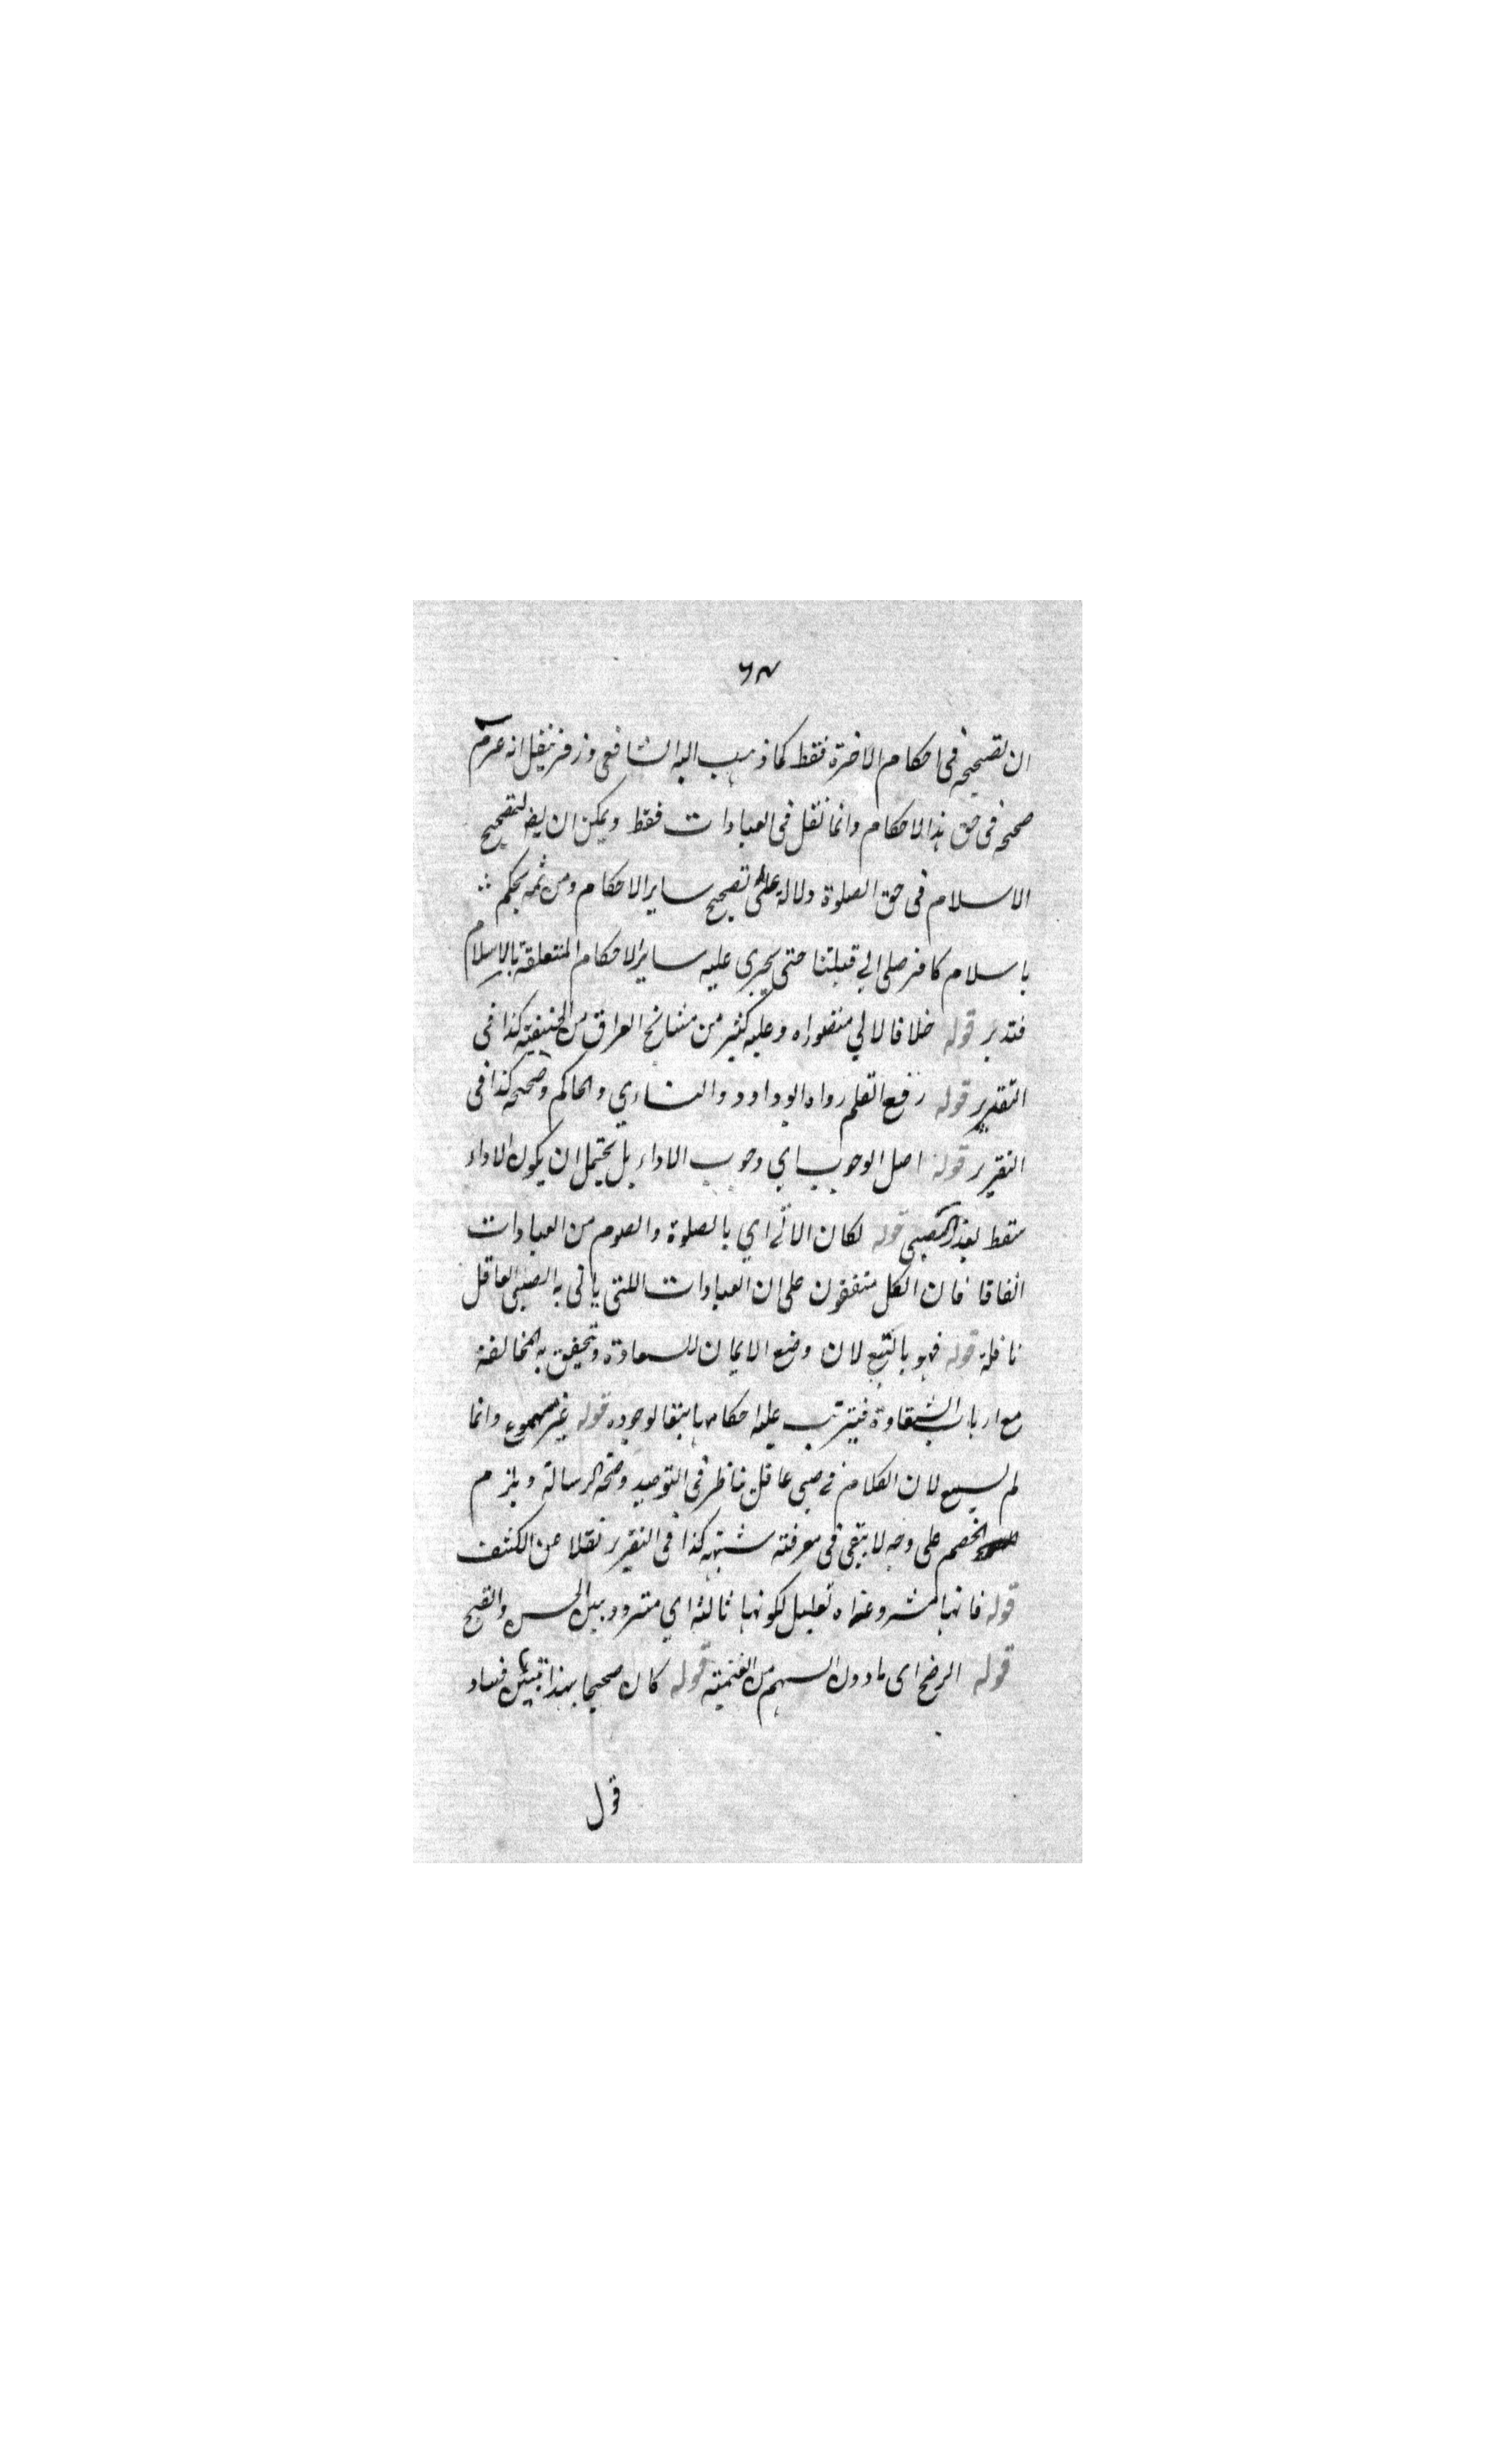 ٦٨
ان تصحيحه فى احكام الاخرة فقط كما ذهب اليه الشافعى وزفر ينقل انه عرم
صححه فى حق هذا الاحكام وانما نقل فى العبادات فقط ويمكن ان يق لتصحيح
الاسلام فى حق الصلوة دلالة على تصحيح ساير الاحكام ومن ثمه يحكم
باسلام كافر صلى الي قبلتنا حتى يجرى عليه ساير الاحكام المتعلقة بالاسلام
فتدبر قوله خلافا لابي منصور اه وعليه كثير من مشايخ العراق من الحنيفية كذا فى
التقرير قوله رفع القلم رواه ابو داود والنساءي والحاكم وصححه كذا فى
التقرير قوله اصل الوجوب اي وجوب الاداء بل يحتمل ان يكون الاداء
سقط بعذر الصبى قوله لكان الاتى اي بالصلوة والصوم من العبادات
اتفاقا فان الكل متفقون على ان العبادات اللتى ياتى به الصبى العاقل
نافلة قوله فهو بالتبع لان وضع الايمان للسعادة وتحقق به المخالفة
مع ارباب الشقاوة فيترتب عليه احكامها تبعا لوجوده قوله غير مسموع وانما
لم يسمع لان الكلام فى صبى عاقل ناظر فى التوحيد وصحة الرسالة ويلزم
الخصم على وجه لا يبقى فى معرفته شبهه كذا فى التقرير نقلا عن الكشف
قوله فانها مشروعة اه تعليل لكونها ثالثه اي متردد بين الحسن والقبح
قوله الرضخ اى ما دون السهم من الغنيمة قوله كان صحيحا بهذا تبين فساد
قول